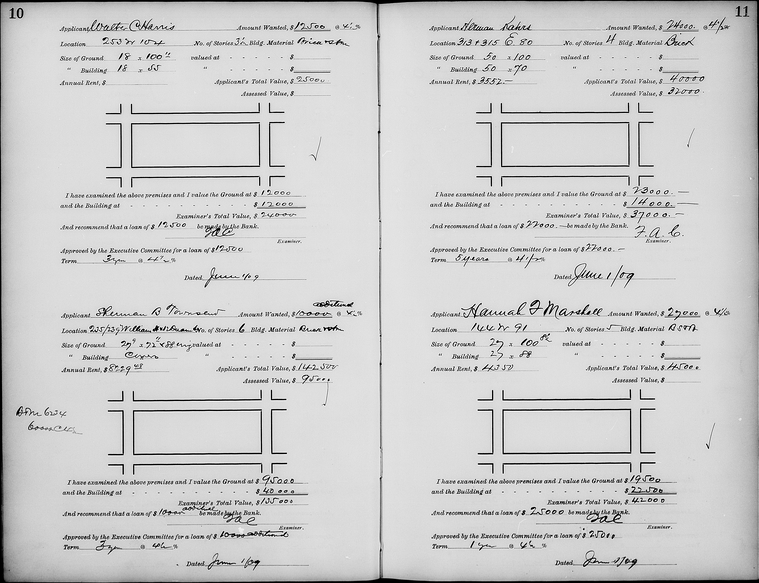 10
Applicant Walter C Harris Amount Wanted, $ 12500 @ 4½%
Location 253 W 104 No. of Stories 3½ Bldg. Material
Size of Ground 18 x 100 valued at $
" Building 18 x 55 " $
Annual Rent, $ Applicant's Total Value, $ 25000
Assessed Value, $
I have examined the above premises and I value the Ground at $ 12000
and the Building at $ 12000
Examiner's Total Value, $ 24000
And recommend that a loan of $ 12500 be made by the Bank.
Examiner.
Approved by the Executive Committee for a loan of $ 12500
Term 3 yrs @ 4½%
Dated, June 1/09
Applicant Sherman B Townsend Amount Wanted, $ 10000 additional @ 4½%
Location 235/239 William No. of Stories 6 Bldg. Material
Size of Ground valued at $
" Building Covers " $
Annual Rent, $ Applicant's Total Value, $ 142500
Assessed Value, $ 95000
I have examined the above premises and I value the Ground at $ 95000
and the Building at $ 40000
Examiner's Total Value, $ 135000
And recommend that a loan of $ 10000 additional be made by the Bank.
Examiner.
Approved by the Executive Committee for a loan of $ 10000 additional
Term 3 yrs @ 4½%
Dated, June 1/09
11
Applicant Herman Kahrs Amount Wanted, $ 24000. @ 4½%
Location 313 & 315 E 80 No. of Stories 4 Bldg. Material Brick
Size of Ground 50 x 100 valued at $
" Building 50 x 70 " $
Annual Rent, $ 3552— Applicant's Total Value, $ 40000
Assessed Value, $ 32000.
I have examined the above premises and I value the Ground at $ 23000.—
and the Building at $ 14000.—
Examiner's Total Value, $ 37000.—
And recommend that a loan of $ 22000.— be made by the Bank.
F. A. C.
Examiner.
Approved by the Executive Committee for a loan of $ 22000.—
Term 5 years @ 4½%
Dated, June 1/09
Applicant Hannah F Marshall Amount Wanted, $ 27000. @ 4½
Location 144 W 91 No. of Stories 5 Bldg. Material
Size of Ground 27 x 100 valued at $
" Building 27 x 88 " $
Annual Rent, $ 4350 Applicant's Total Value, $ 45000
Assessed Value, $
I have examined the above premises and I value the Ground at $ 19500
and the Building at $ 22500
Examiner's Total Value, $ 42000
And recommend that a loan of $ 25000 be made by the Bank.
Examiner.
Approved by the Executive Committee for a loan of $ 25000
Term 1 yr @ 4½
Dated, June 1/09